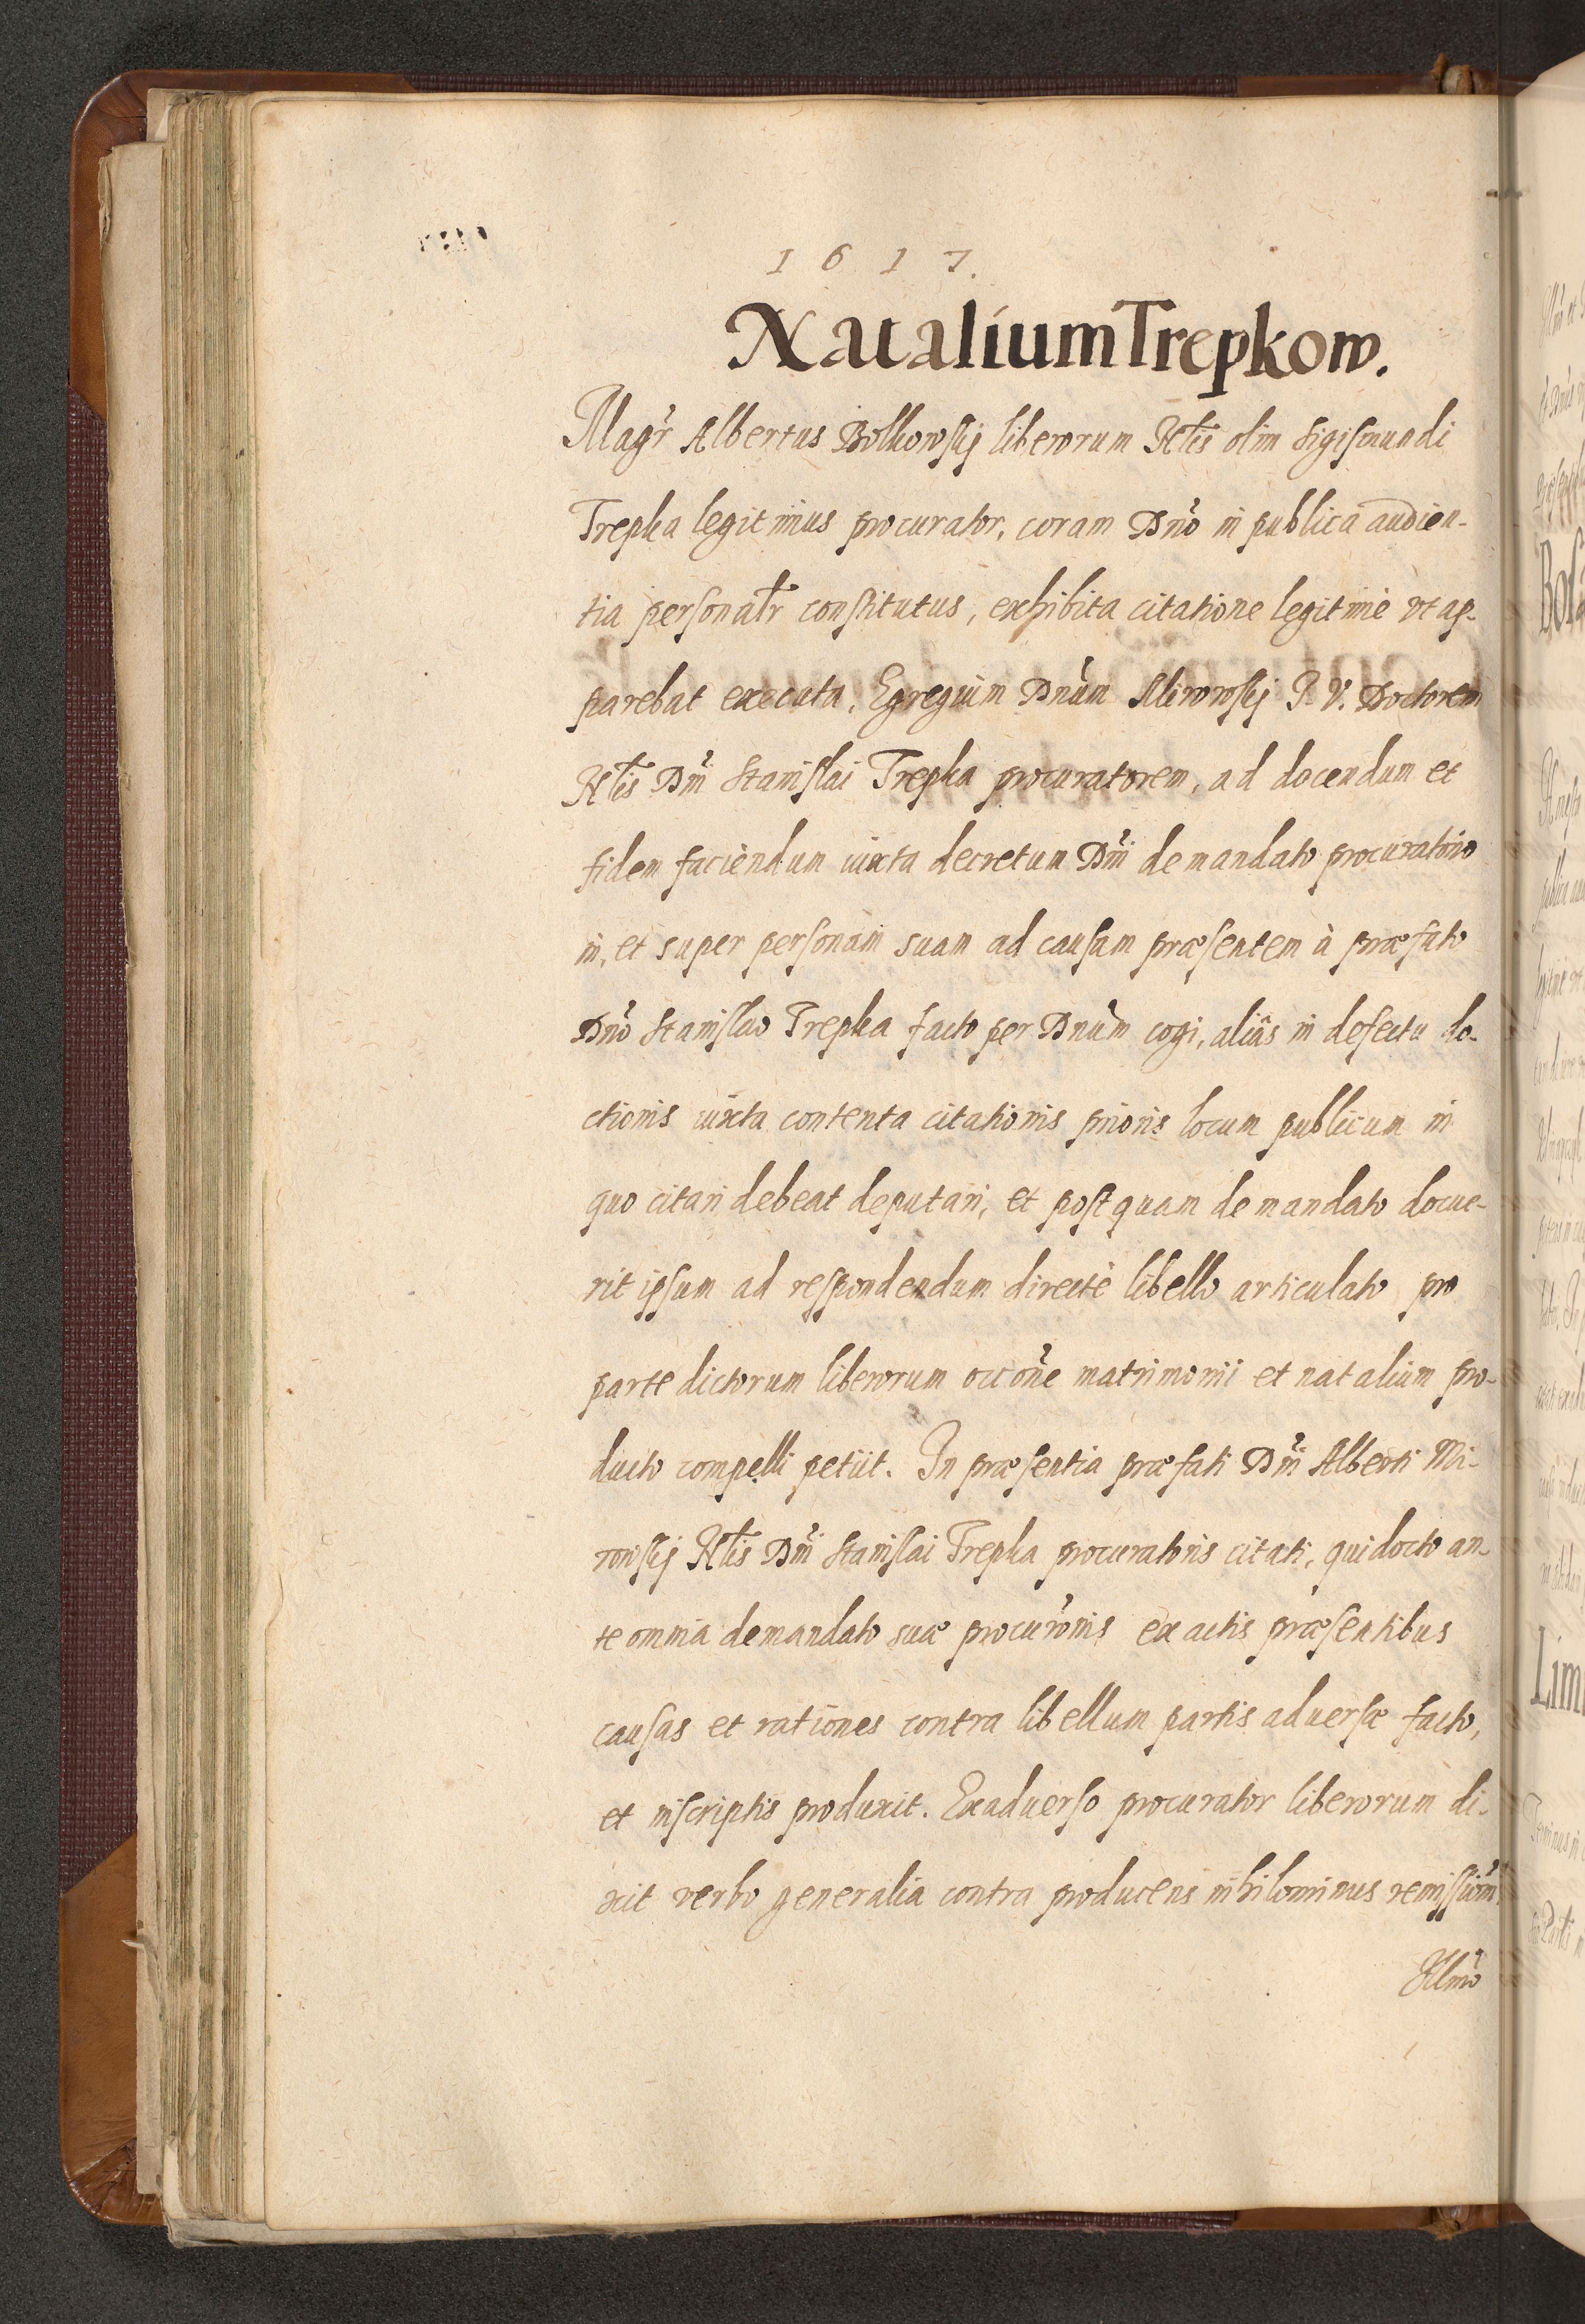 1617.
Natalium Trepkow.
Magr Albertus Bolkowskij liberorum Nlis olim Sigismundi
Trepka legitimus procurator, coram Dno in publica audien-
tia personalr constitutus, exhibita citatione legitimè vt ap-
parebat executa, Egregium Dnum Mirowskij I. V. Doctorem
Nlis Dni Stanislai Trepka procuratorem, ad docendum et
fidem faciendum iuxta decretum Dni de mandato procuratorio
in, et super personam suam ad causam præsentem à præfato
Dno Stanislao Trepka facto per Dnum cogi, aliâs in defectu do-
ctionis iuxta contenta citationis prioris locum publicum in
quo citari debeat deputari, et postquam de mandato docue-
rit ipsum ad respondendum directè libello articulato pro
parte dictorum liberorum occone matrimonii et natalium pro-
ducto compelli petiit. In præsentia præfati Dni Alberti Mi-
rowskij Nlis Dni Stanislai Trepka procuratoris citati, qui docto an-
te omnia de mandato suæ procuronis ex actis præsentibus
causas et rationes contra libellum partis aduersæ facto,
et inscriptis produxit. Exaduerso procurator liberorum di-
xit verbo generalia contra producens nihilominus remissiom
Illmo